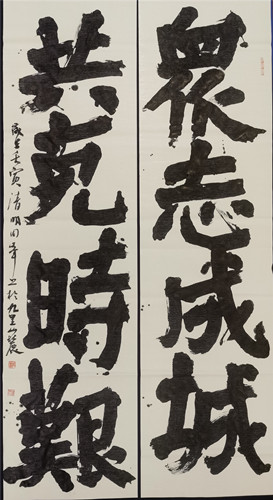 眾志成城
共克時艱
歲在壬寅清明於九里山麓